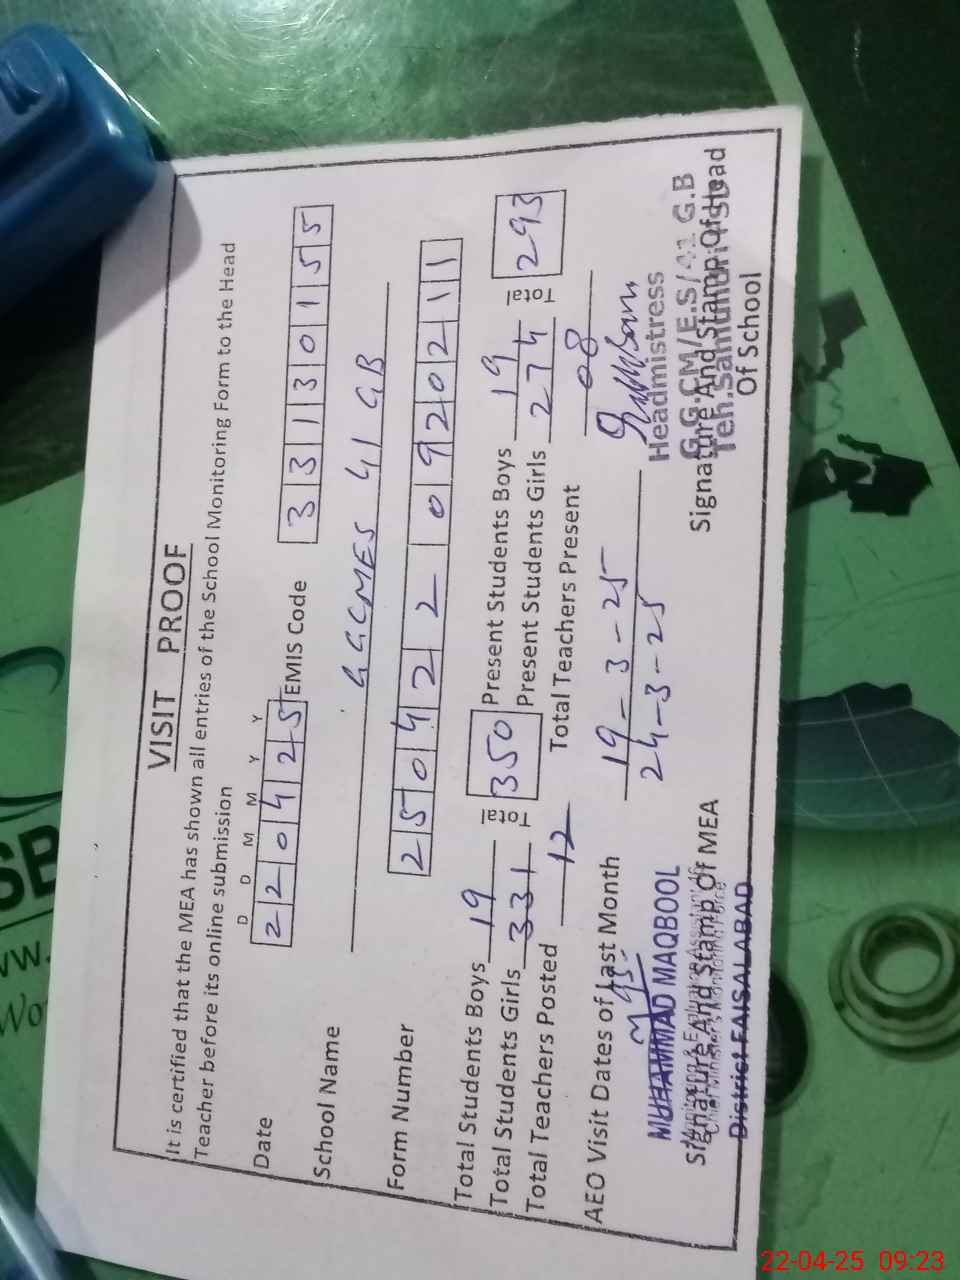 VISIT PROOF
It is certified that the MEA has shown all entries of the School Monitoring Form to the Head
Teacher before its online submission
D D M M Y Y
Date 220425 EMIS Code 33130155
School Name GGCMES 41 GB
Form Number 2504220920211
Total Students Boys 19 Total 350 Present Students Boys 19 Total 293
Total Students Girls 331 Present Students Girls 274
Total Teachers Posted 12 Total Teachers Present 08
AEO Visit Dates of Last Month 19-3-25
24-3-25
MUHAMMAD MAQBOOL
Monitoring & Evaluation Assistant
Chief Minister's Monitoring Force
District FAISALABAD
Signature And Stamp Of MEA
Headmistress
G.G.CM/E.S/41 G.B
Teh.
Signature And Stamp Of Head
Of School
SB
ww.
Wor
22-04-25 09:23